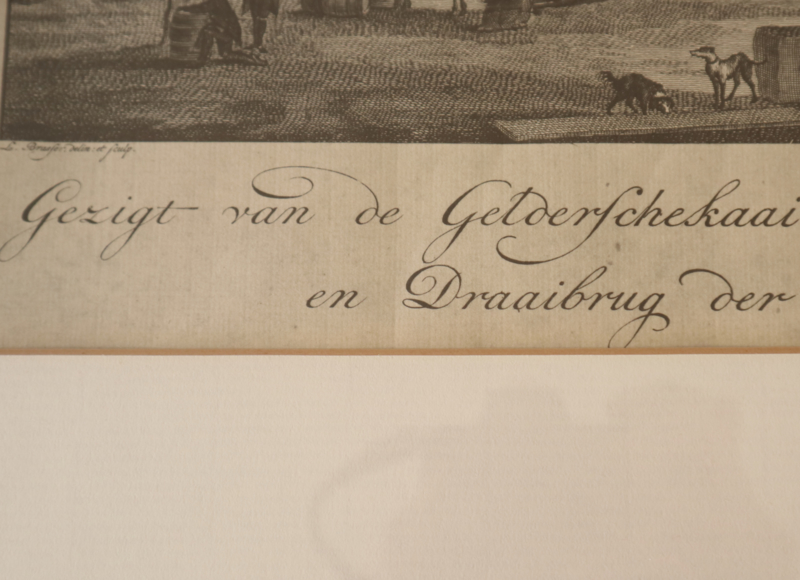 delin. et sculp.
Gezigt van de Gelderſchekaai
en Draaibrug der